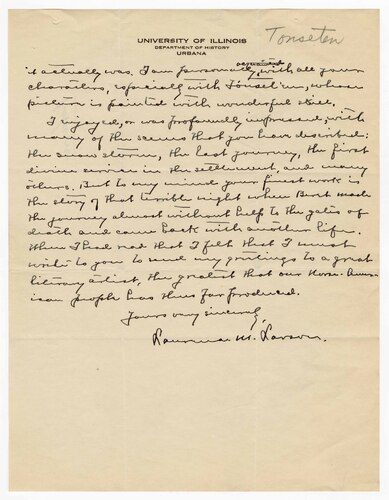 UNIVERSITY OF ILLINOIS
DEPARTMENT OF HISTORY
URBANA
Tonseten
it actually was. I am personally acquainted with all your
characters, especially with Tönset'un, whose
picture is painted with wonderful skill.
I enjoyed, or was profoundly impressed, with
many of the scenes that you have described:
the snow storm, the last journey, the first
divine service in the settlement, and many
others. But to my mind your finest work is
the story of that terrible night when Beret made
the journey almost without help to the gates of
death and came back with another life.
When I had read that I felt that I must
write to you to send my greetings to a great
literary artist, the greatest that our Norse-Amer-
ican people has thus far produced.
Yours very sincerely,
Laurence M. Larson.